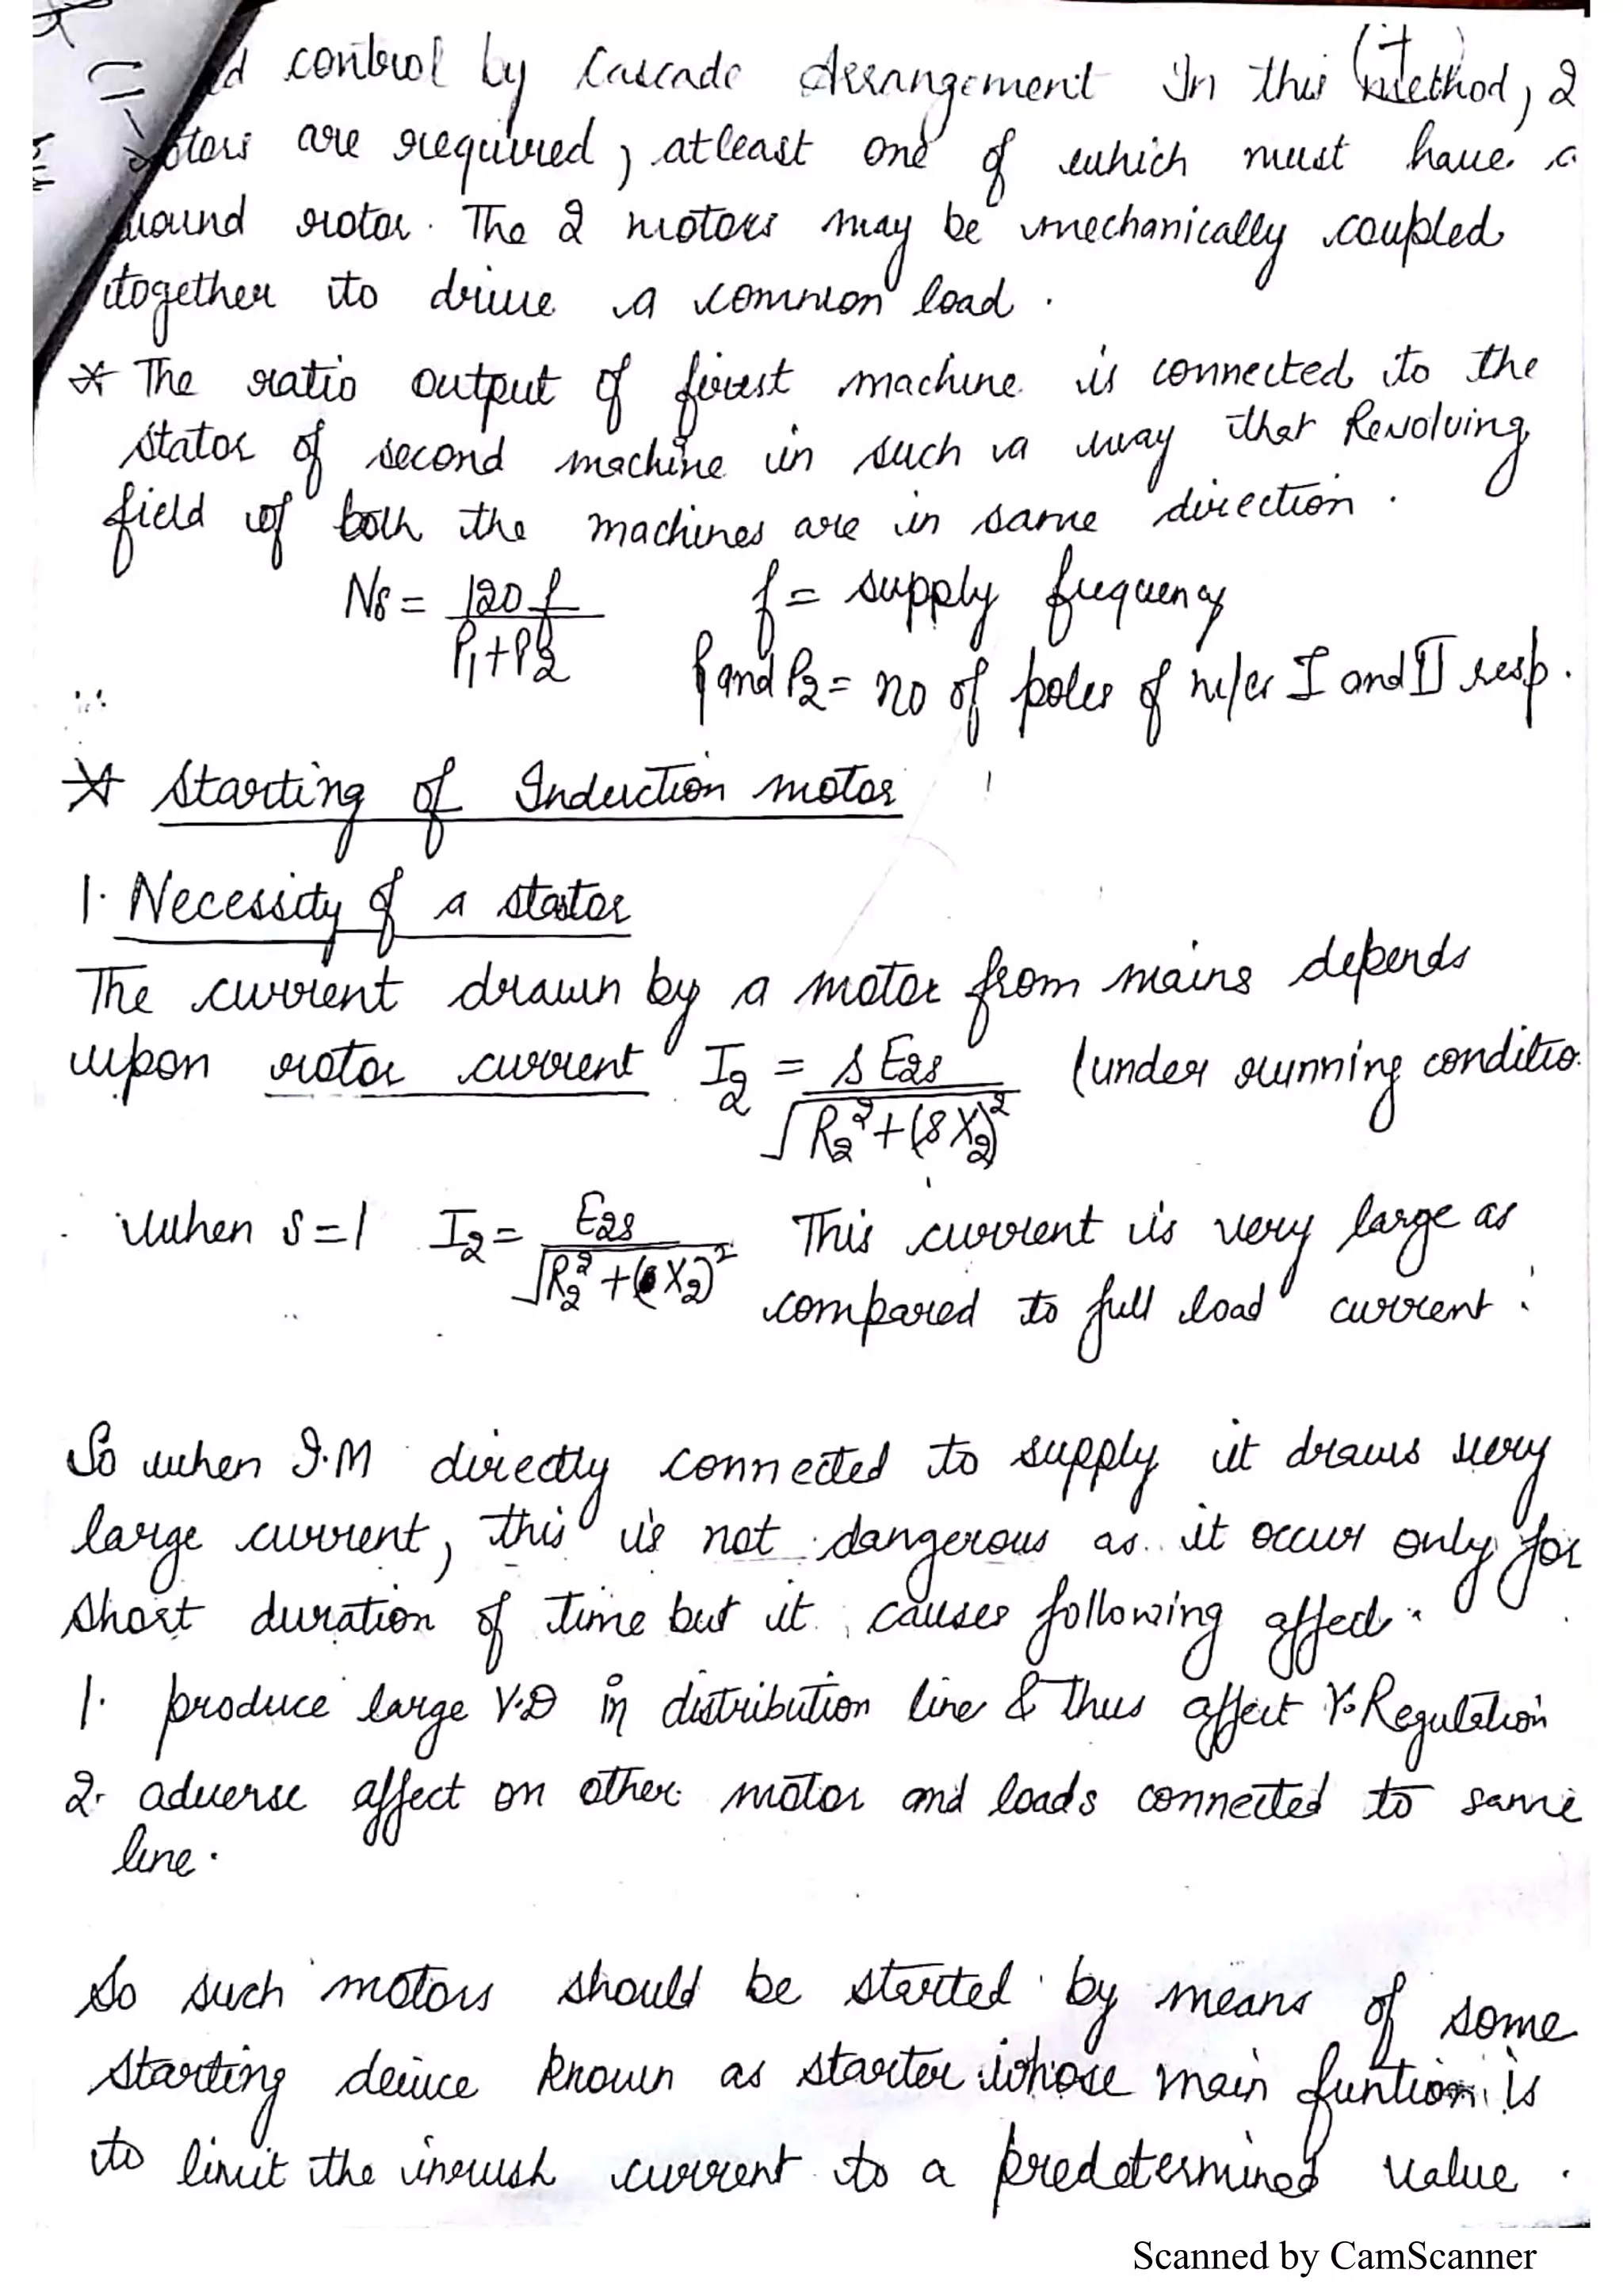 control by Cascade Arrangement In this method, 2
are required, atleast one of which must have a
wound rotor. The 2 motors may be mechanically coupled
together to drive a common load.
* The ratio output of first machine is connected to the
stator of second machine in such a way that Revolving
field of both the machines are in same direction.
Ns = 120 f / P1+P2 f = supply frequency
P1 and P2 = no of poles of m/cs I and II resp.
* Starting of Induction motor
1. Necessity of a stator
The current drawn by a motor from mains depends
upon rotor current I2 = s E2s / √R2² + (s X2)² (under running conditio
When s = 1 I2 = E2s / √R2² + (X2)² This current is very large as
compared to full load current.
So when I.M directly connected to supply it draws very
large current, this is not dangerous as it occur only for
short duration of time but it causes following affect.
1. produce large V.D in distribution line & thus affect V.Regulation
2. adverse affect on other motor and loads connected to same
line.
So such motors should be started by means of some
starting device known as starter whose main funtion is
to limit the inrush current to a predetermined value.
Scanned by CamScanner